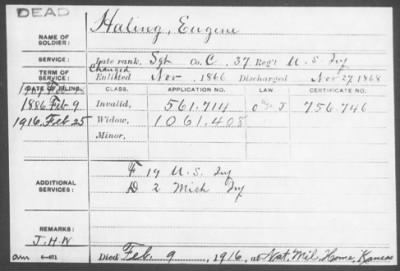 DEAD
NAME OF SOLDIER: Haling, Eugene
SERVICE: Late rank, Sgt Co. C, 37 Reg't U.S. Inf
TERM OF SERVICE: Changed Enlisted Nov 1866 Discharged Nov 27 1868
DATE OF FILING. CLASS. APPLICATION NO. LAW CERTIFICATE NO.
1886 Feb 9 Invalid, 561.714 J 756.746
1916 Feb 25 Widow, 1061.408
Minor,
ADDITIONAL SERVICES: F 19 U.S. Inf
D 2 Mich Inf
REMARKS:
J.H.W
Died Feb. 9, 1916, at Nat. Mil. Home, Kansas